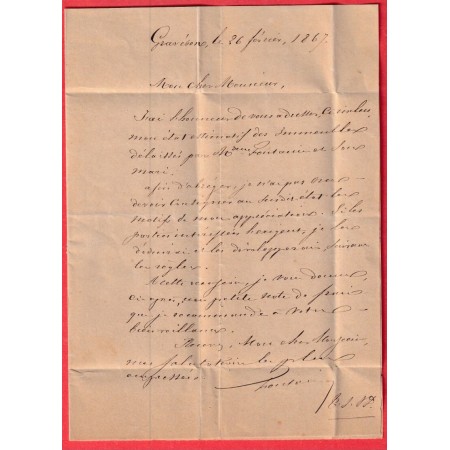 le 26 février, 1867.
Mon cher Monsieur,
J'ai l'honneur de vous adresser,
mon état estimatif des Immeubles
délaissés par Mme Fontaine et son
mari.
afin d'abréger, je n'ai pas cru
devoir consigner au sus dit état les
motifs de mon appréciation. Si les
parties intéressées l'exigent, je les
déduirai et les développerai suivant
les règles.
A cette occasion, je vous donne,
ci-joint, une petite note de frais
que je recommande à votre
bienveillance.
Recevez, Mon cher Monsieur,
mes salutations les plus
empressées